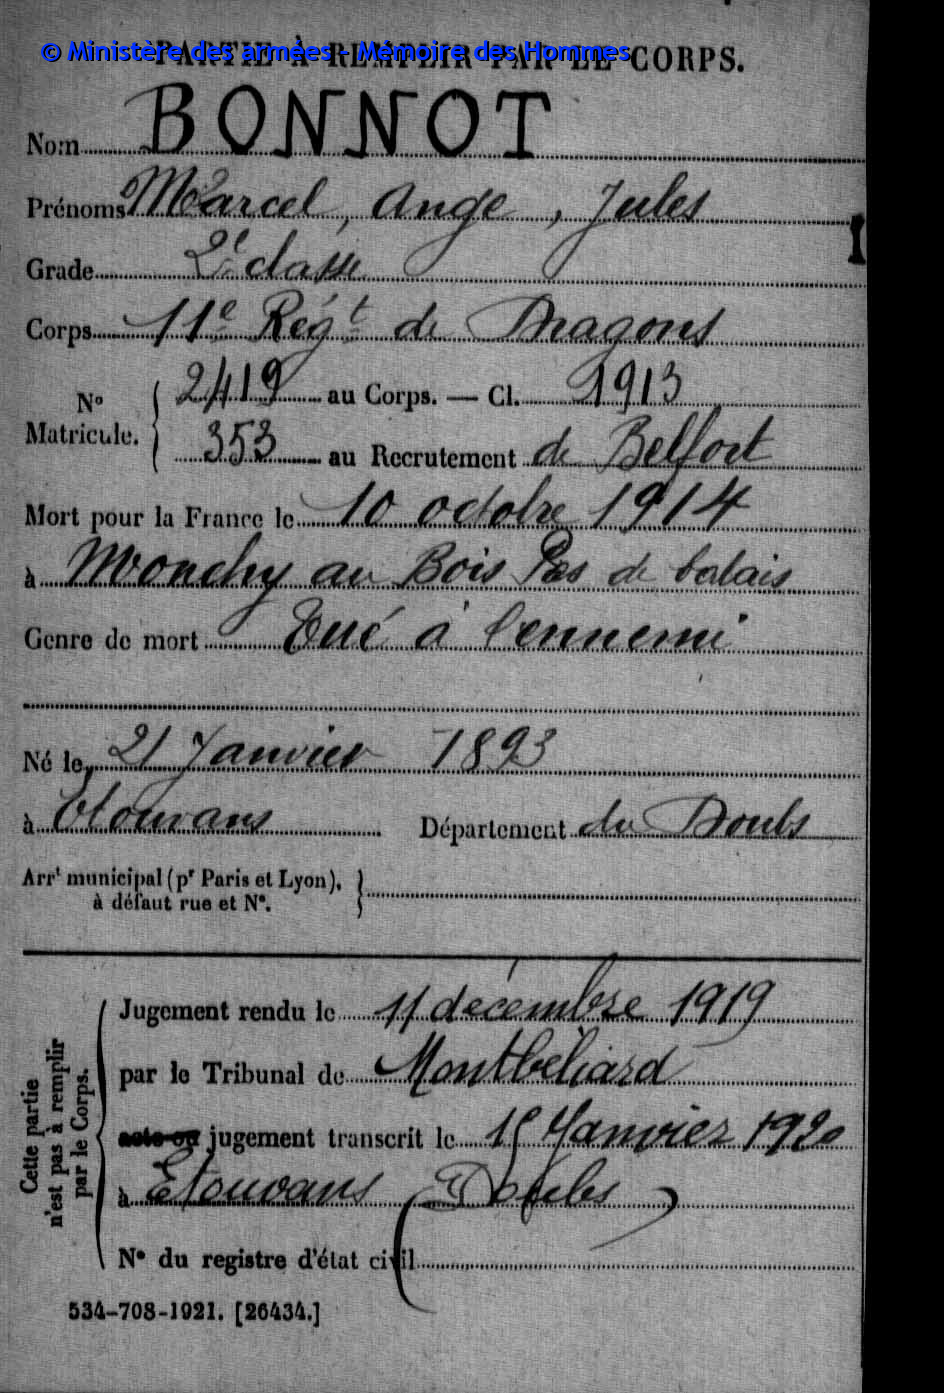 © Ministère des armées - Mémoire des Hommes
PARTIE À REMPLIR PAR LE CORPS.
Nom BONNOT
Prénoms Marcel, Ange, Jules
Grade 2e classe
Corps 11e Régt de Dragons
No Matricule. 2419 au Corps. — Cl. 1913
353 au Recrutement de Belfort
Mort pour la France le 10 octobre 1914
à Monchy au Bois Pas de Calais
Genre de mort Tué à l'ennemi
Né le 21 Janvier 1893
à Etouvans Département du Doubs
Arrt municipal (pr Paris et Lyon), à défaut rue et No.
Cette partie n'est pas à remplir par le Corps.
Jugement rendu le 11 décembre 1919
par le Tribunal de Montbéliard
acte ou jugement transcrit le 15 Janvier 1920
à Etouvans (Doubs)
No du registre d'état civil
534-708-1921. [26434.]